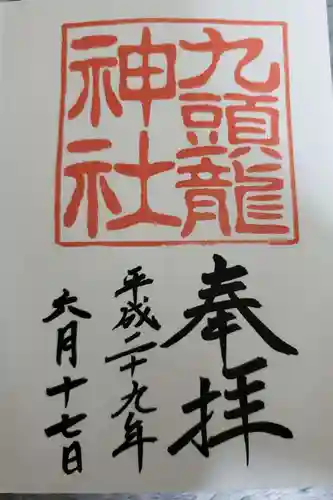 九頭龍
神社
奉拝
平成二十九年
六月十七日